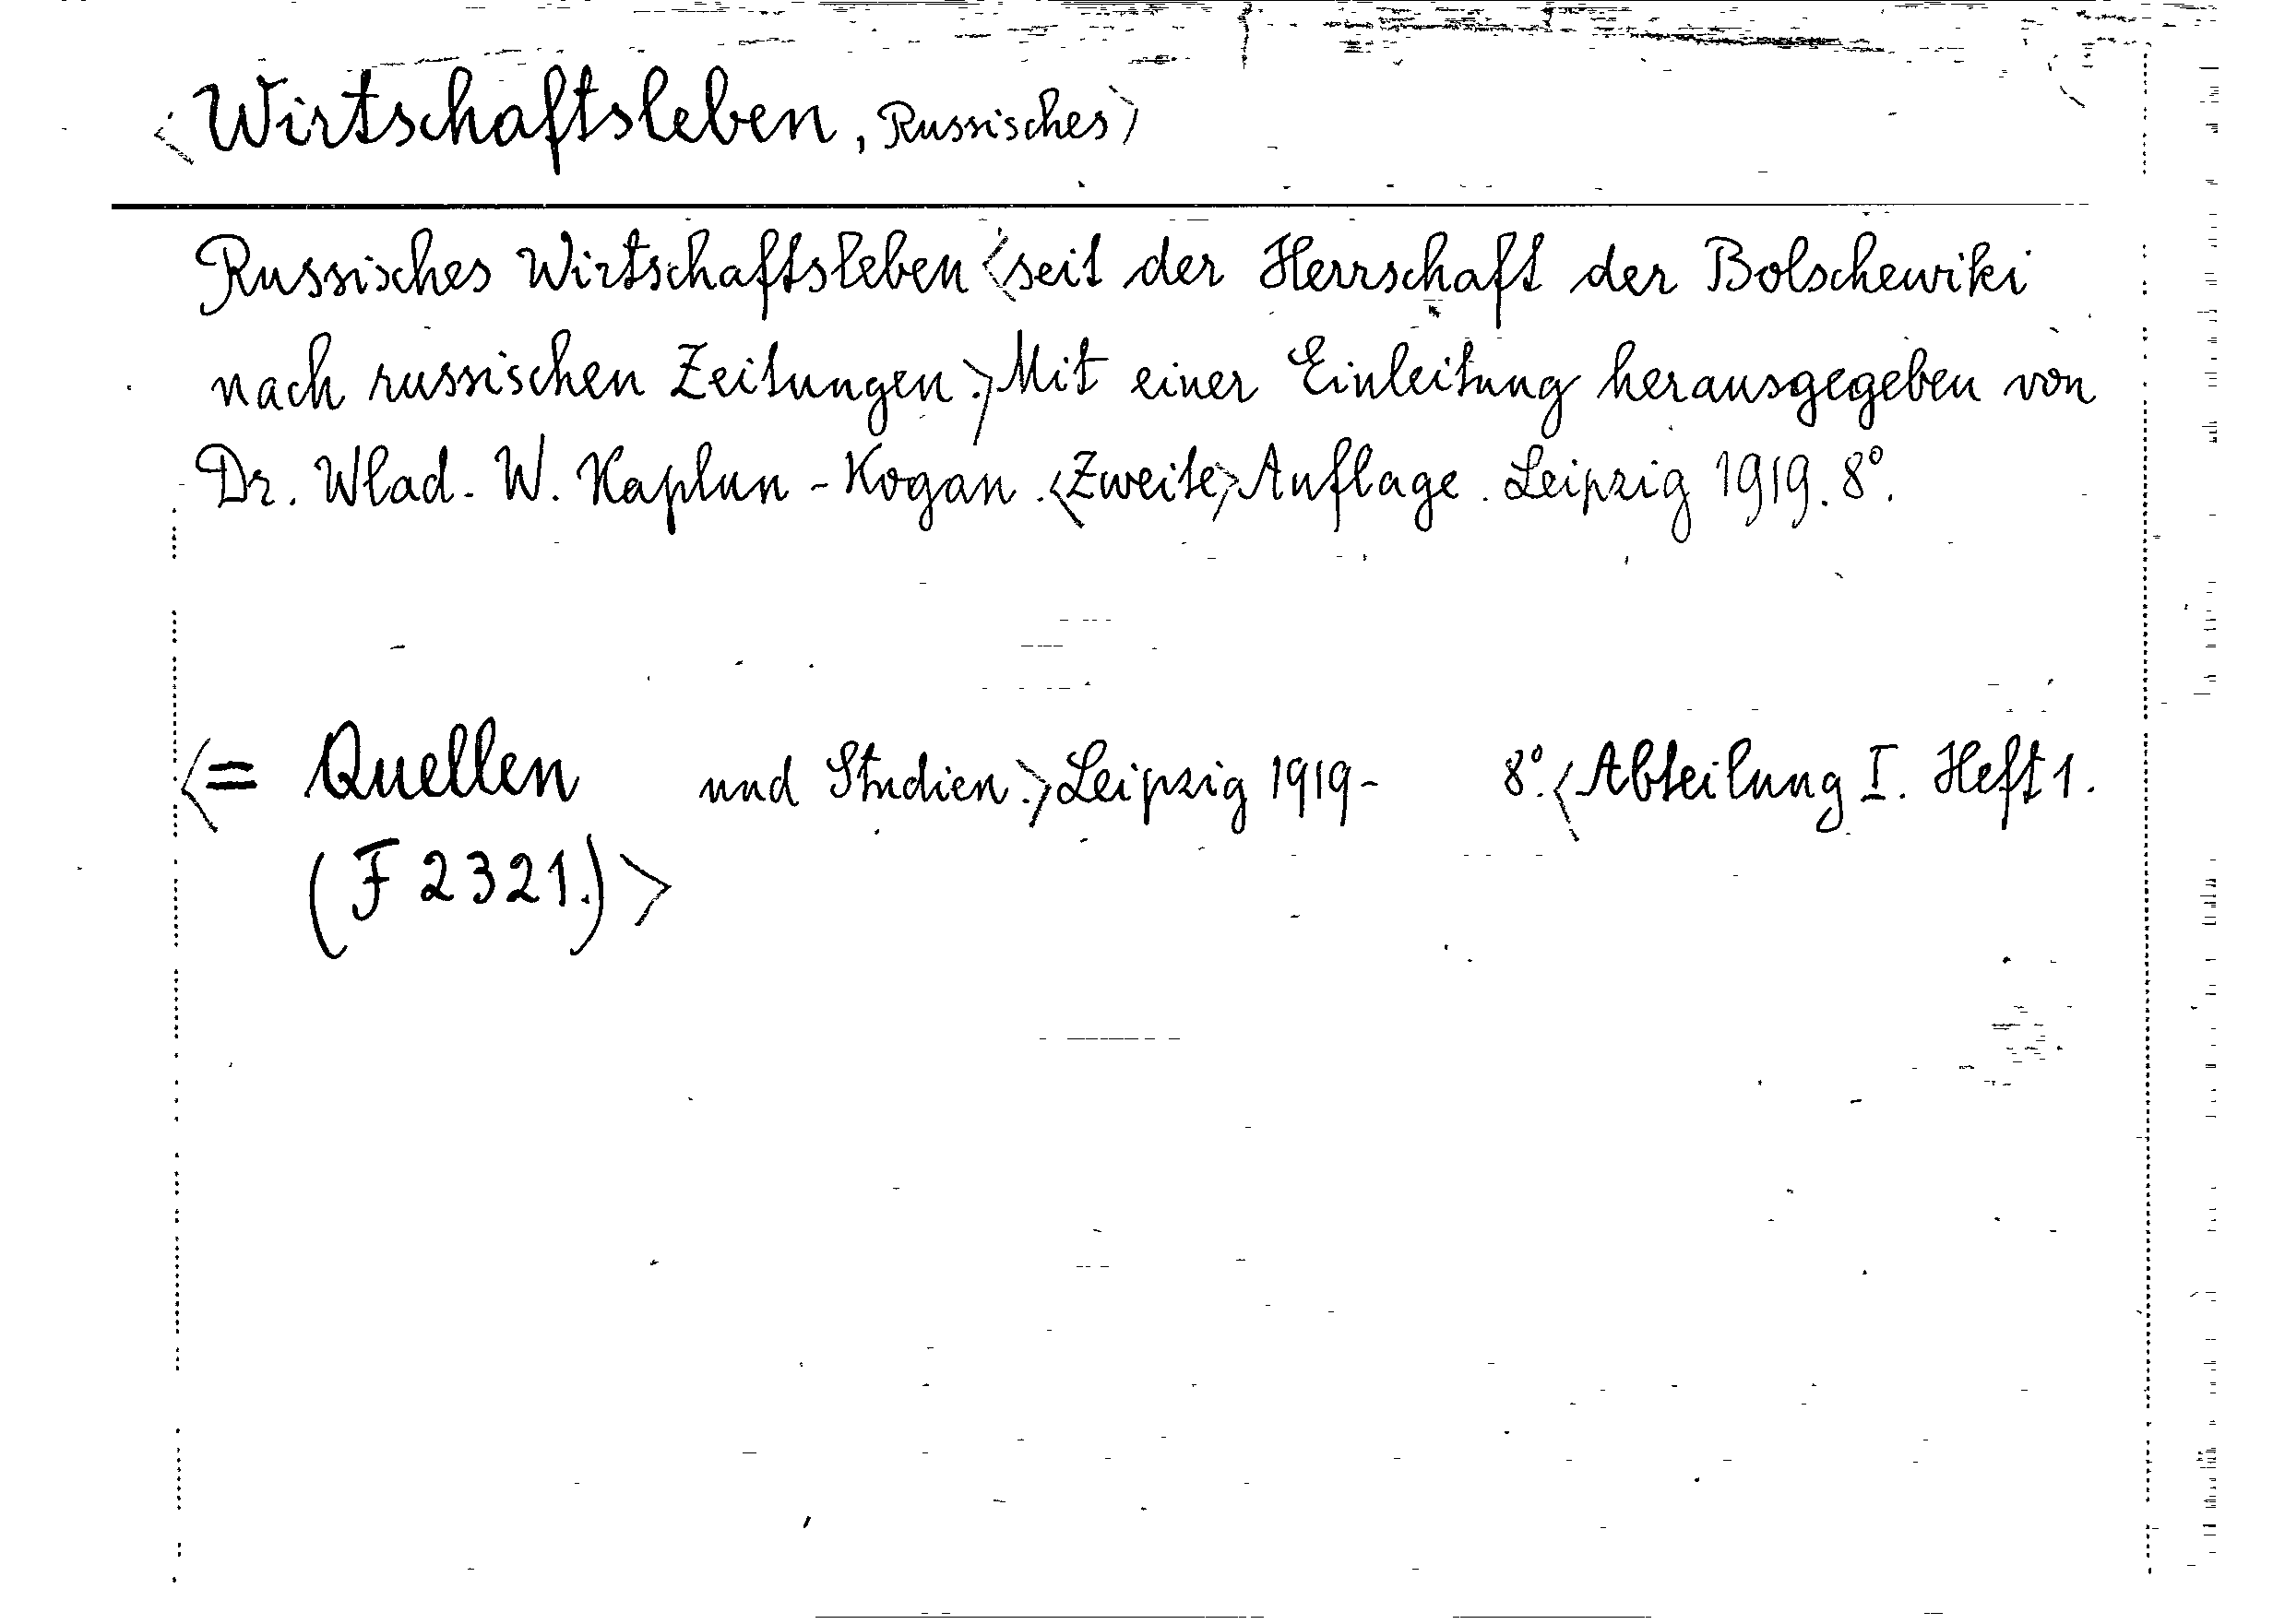 <Wirtschaftsleben, Russisches>
Russisches Wirtschaftsleben <seit der Herrschaft der Bolschewiki
nach russischen Zeitungen.> Mit einer Einleitung herausgegeben von
Dr. Wlad. W. Kaplun-Kogan. <Zweite> Auflage. Leipzig 1919. 8°.
<= Quellen und Studien.> Leipzig 1919- 8°. <Abteilung I. Heft 1.
(F 2321.)>